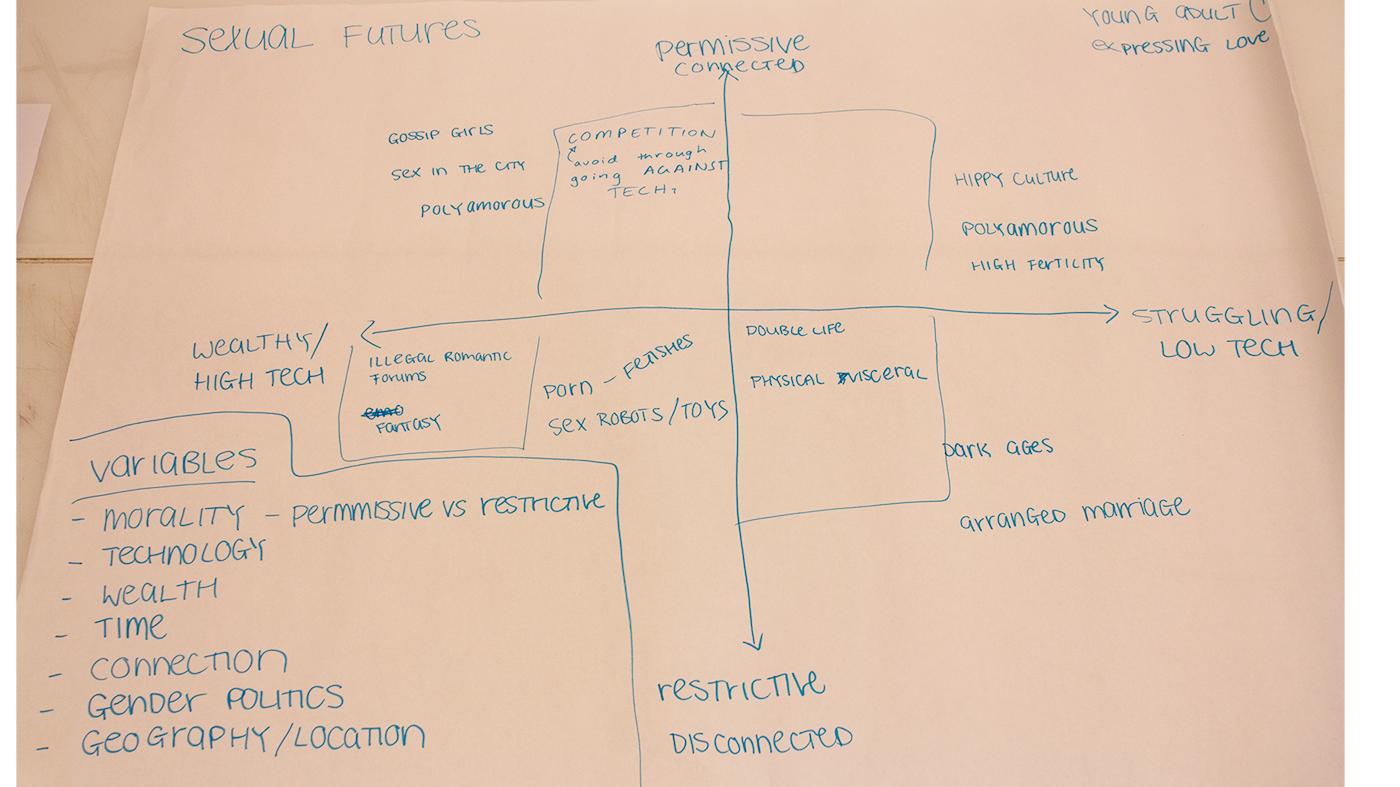 SEXUAL FUTURES
YOUNG ADULT
EXPRESSING LOVE
PERMISSIVE
CONNECTED
GOSSIP GIRLS
SEX IN THE CITY
POLYAMOROUS
COMPETITION
avoid through
going AGAINST
TECH?
HIPPY CULTURE
POLYAMOROUS
HIGH FERTILITY
WEALTHY/
HIGH TECH
STRUGGLING/
LOW TECH
ILLEGAL ROMANTIC
FORUMS
FANTASY
PORN - FETISHES
SEX ROBOTS/TOYS
DOUBLE LIFE
PHYSICAL VISCERAL
DARK AGES
ARRANGED MARRIAGE
VARIABLES
- MORALITY - PERMMISSIVE VS RESTRICTIVE
- TECHNOLOGY
- WEALTH
- TIME
- CONNECTION
- GENDER POLITICS
- GEOGRAPHY/LOCATION
RESTRICTIVE
DISCONNECTED